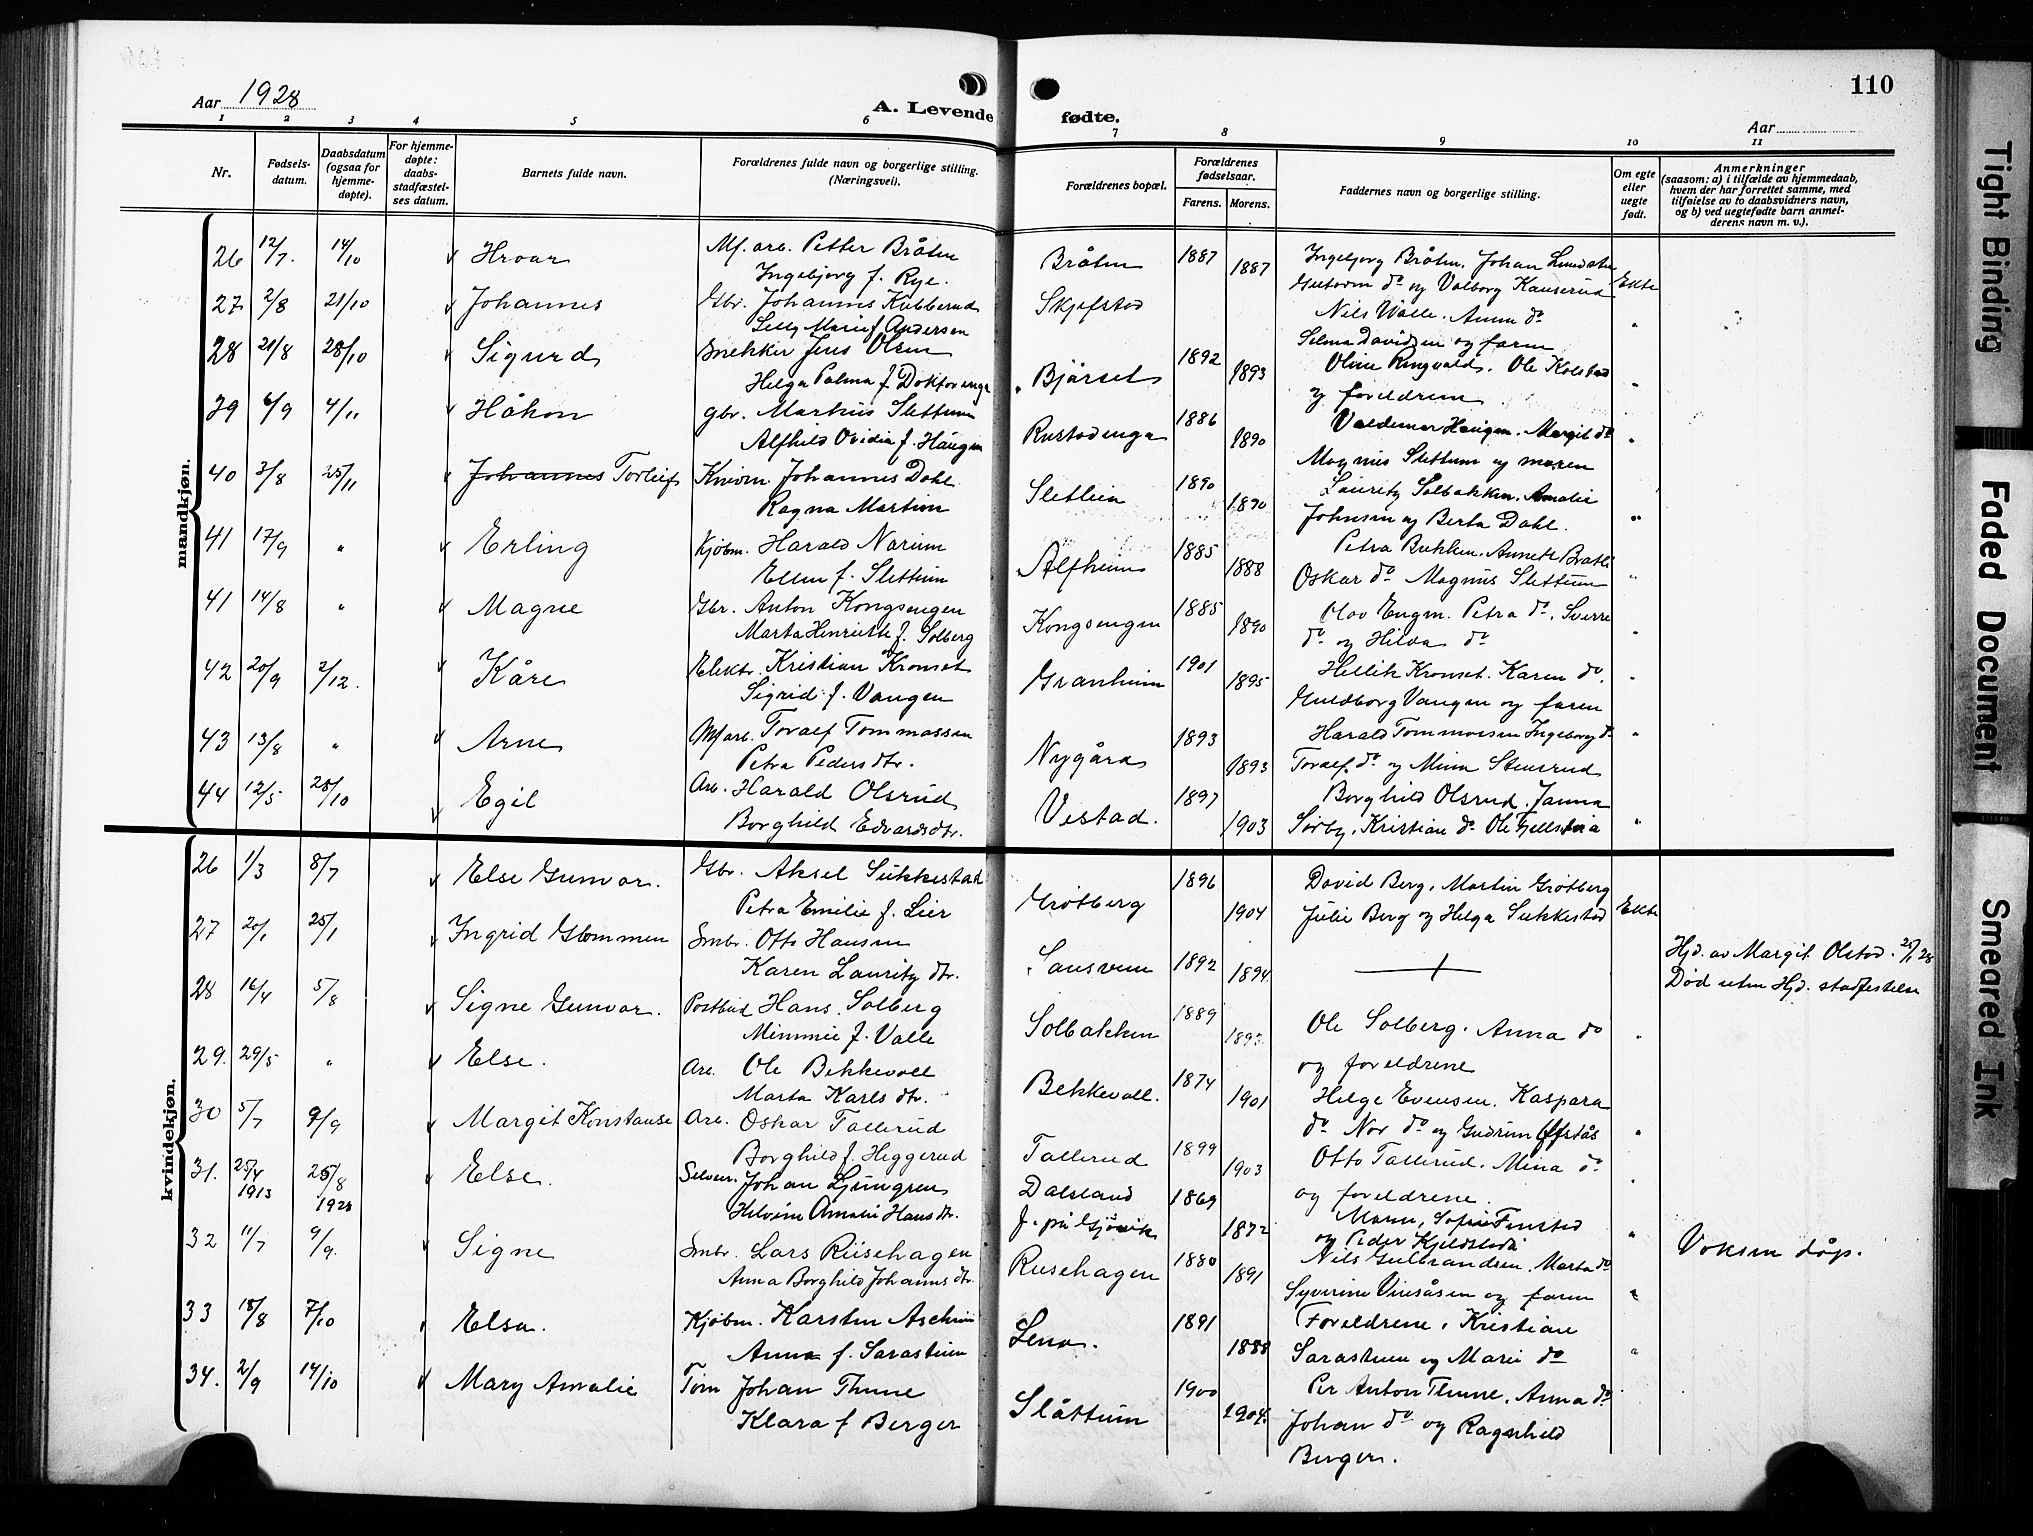 110
Aar 1928
A. Levende fødte.
Aar
1 2 3 4 5 6 7 8 9 10 11
Nr.
Fødselsdatum.
Daabsdatum (ogsaa for hjemmedøpte).
For hjemmedøpte: daabsstadfæstelses datum.
Barnets fulde navn.
Forældrenes fulde navn og borgerlige stilling. (Næringsvei).
Forældrenes bopæl.
Forældrenes fødselsaar.
Farens. Morens.
Faddernes navn og borgerlige stilling.
Om egte eller uegte født.
Anmerkninger
(saasom: a) i tilfælde av hjemmedaab,
hvem der har forrettet samme, med
tilføielse av to daabsvidners navn,
og b) ved uegtefødte barn anmelderens navn m. v.).
mandkjøn.
26 12/7. 14/10 Hroar Mf. arb. Petter Bråten Bråten 1887 1887 Ingebjorg Bråten. Johan
Ingebjorg f. Rye. Guttorm do og Valborg Kauserud Ekte
27 2/8 21/10 Johannes Gbr. Johannes Kubberud Skjefstad Nils Walle. Anna do "
Selly Marie f. Andersen Selma Davidsen og faren
28 21/8 28/10 Sigurd Snekker Jens Olsen Bjørset 1892 1893 Oline Ringvold. Ole Kolstad "
Helga Palma f. Doktorenga og foreldrene
39 6/9 4/11 Håkon gbr. Markus Slettum Rustadenga 1886 1890 Valdemar Haugen. Margit do "
Alfhild Ovidia f. Haugen Magnus Slettum og moren
40 3/8 25/11 Johannes Torleif Johannes Dahl Sletlien 1890 1890 Lauritz Solbakken. Amalie
Ragna Martien Johnsen og Berta Dahl. "
41 17/9 " Erling Kjøbm. Harald Narum Alfheim 1885 1888 Petra Bekken. Annette
Ellen f. Slettum Oskar do Magnus Slettum "
41 14/8 " Magne Gbr. Anton Kongsengen Kongsengen 1885 1890 Olov Engen. Petra do. Sverre
Marta Henriette f. Solberg do og Hilda do "
42 20/9 2/12. Kåre Elektr. Kristian Kronset Granheim 1901 1895 Hellik Kronset. Karen do. "
Sigrid f. Vangen Guldborg Vangen og faren
43 13/8 " Arne Mf arb. Toralf Tommassen Nygård 1893 1893 Harald Tommassen Ingeborg do "
Petra Pedersdtr. Toralf. do og Mina Stensrud
44 12/5 28/10 Egil Arb. Harald Olsrud Vestad. 1897 1903 Borghild Olsrud. Janna
Borghild Edvardsdtr. Sørby. Kristian do Ole "
kvindekjøn.
26 1/3 8/7 Else Gunvor. Gbr. Aksel Sukkestad Grøtberg 1896 1904 David Berg, Martin Grøtberg
Petra Emilie f. Lier Julie Berg og Helga Sukkestad Ekte
27 20/1 25/1 Ingrid Glommen Smbr. Otto Hansen 1892 1894 Hjd. av Margit Olstad. 25/1 28
Karen Lauritz dtr. Død uten Hjd. stadfestelse
28 16/4 5/8 Signe Gunvor. Postbud Hans Solberg Solbakken 1889 Ole Solberg. Anna do "
Mimmie f. Valle og foreldrene
29. 29/5 " Else. Arb. Ole Bekkevoll Bekkevoll. 1874 1901 Helge Evensen. Kaspara
Marta Karls dtr. do Nor do og Gudrun "
30 5/7 9/9 Margit Konstanse Arb. Oskar Tollerud Tollerud 1899 1903 Otto Tollerud. Mina do
Borghild f. Heggerud og foreldrene.
31. 25/4 1913 26/8 1928 Else. Johan Ljungren Dalsland 1869 1872 Moren, Sofie Finstad
Helvine Amalie Hans dtr. f. på Gjøvik og Peder Kjeldstad " Voksen dåp.
32 11/7 9/9. Signe Smbr. Lars Rusehagen Rusehagen 1880 1891 Nils Gulbrandsen. Marta do
Anna Borghild Johanns dtr. Syverine og faren "
33 18/8 7/10 Elsa. Kjøbm. Karsten Aschim Lena. 1891 1888 Foreldrene, Kristian
Anna f. Sarastuen Sarastuen og Marie do "
34. 2/9 14/10 Mary Amalie Tøm Johan Thune Slåttum 1900 1904. Per Anton Thune. Anna do
Klara f Berger Johan do og Ragnhild
Berger.
Tight Binding
Faded Document
Smeared Ink